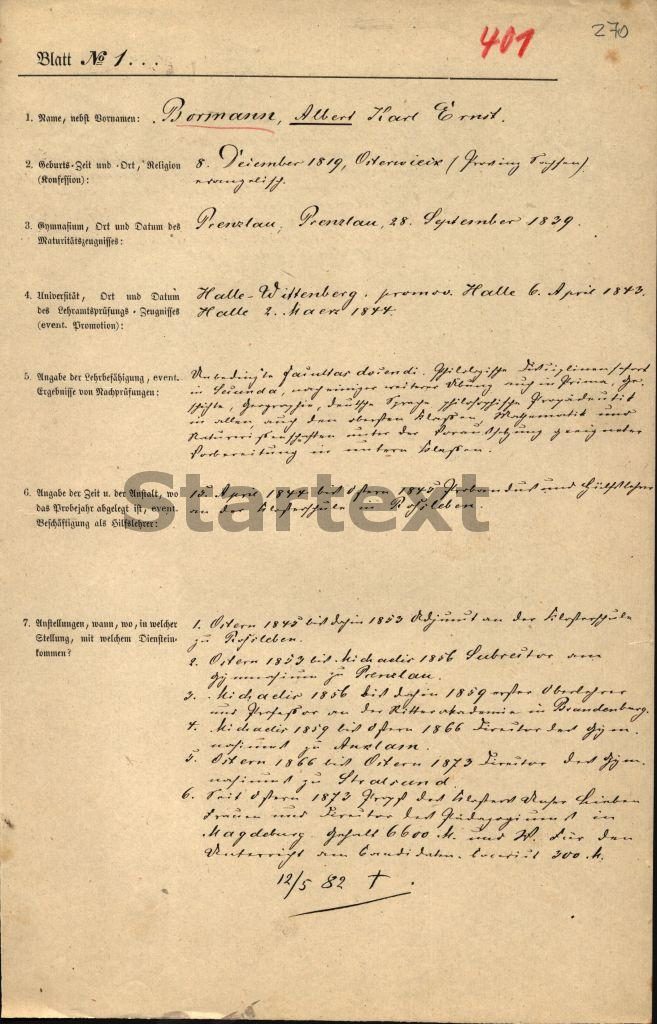 401
270
Blatt № 1...
1. Name, nebst Vornamen: Bormann, Albert Karl Ernst.
2. Geburts-Zeit und -Ort, Religion 8. Dezember 1819, Osterwieck (Provinz Sachsen),
(Konfession): evangelisch.
3. Gymnasium, Ort und Datum des Prenzlau, Prenzlau, 28. September 1839.
Maturitätszeugnisses:
4. Universität, Ort und Datum Halle-Wittenberg. promov. Halle 6. April 1843.
des Lehramtsprüfungs-Zeugnisses Halle 2. Maerz 1844.
(event. Promotion):
5. Angabe der Lehrbefähigung, event. Unbedingte facultas docendi. Philologische Disciplinen
Ergebnisse von Nachprüfungen: in Secunda, nach einiger weiterer Übung auch in Prima, Ge-
schichte, Geographie, deutsche Sprache philosophische Propädeutik
in allen, auch den obersten Klassen, Mathematik und
Naturwissenschaften unter der Voraussetzung geeigneter
Vorbereitung in untern Klassen.
6. Angabe der Zeit u. der Anstalt, wo 15. April 1844 bis Ostern 1845 Probandus und Hülfslehrer
das Probejahr abgelegt ist, event. an der Klosterschule in Rossleben.
Beschäftigung als Hilfslehrer:
Startext
7. Anstellungen, wann, wo, in welcher 1. Ostern 1845 bis dahin 1853 Adjunct an der Klosterschule
Stellung, mit welchem Dienstein- zu Rossleben.
kommen? 2. Ostern 1853 bis Michaelis 1856 Subrector am
Gymnasium zu Prenzlau.
3. Michaelis 1856 bis dahin 1859 erster Oberlehrer
und Professor an der Ritterakademie in Brandenburg.
4. Michaelis 1859 bis Ostern 1866 Director des Gym-
nasiums zu Anklam.
5. Ostern 1866 bis Ostern 1873 Director des Gym-
nasiums zu Stralsund
6. Seit Ostern 1873 Propst des Klosters Unser Lieben
Frauen und Director des Pädagogiums in
Magdeburg. Gehalt 6600 M. und W. Für den
Unterricht am Candidaten- 300 M.
12/5 82 †.